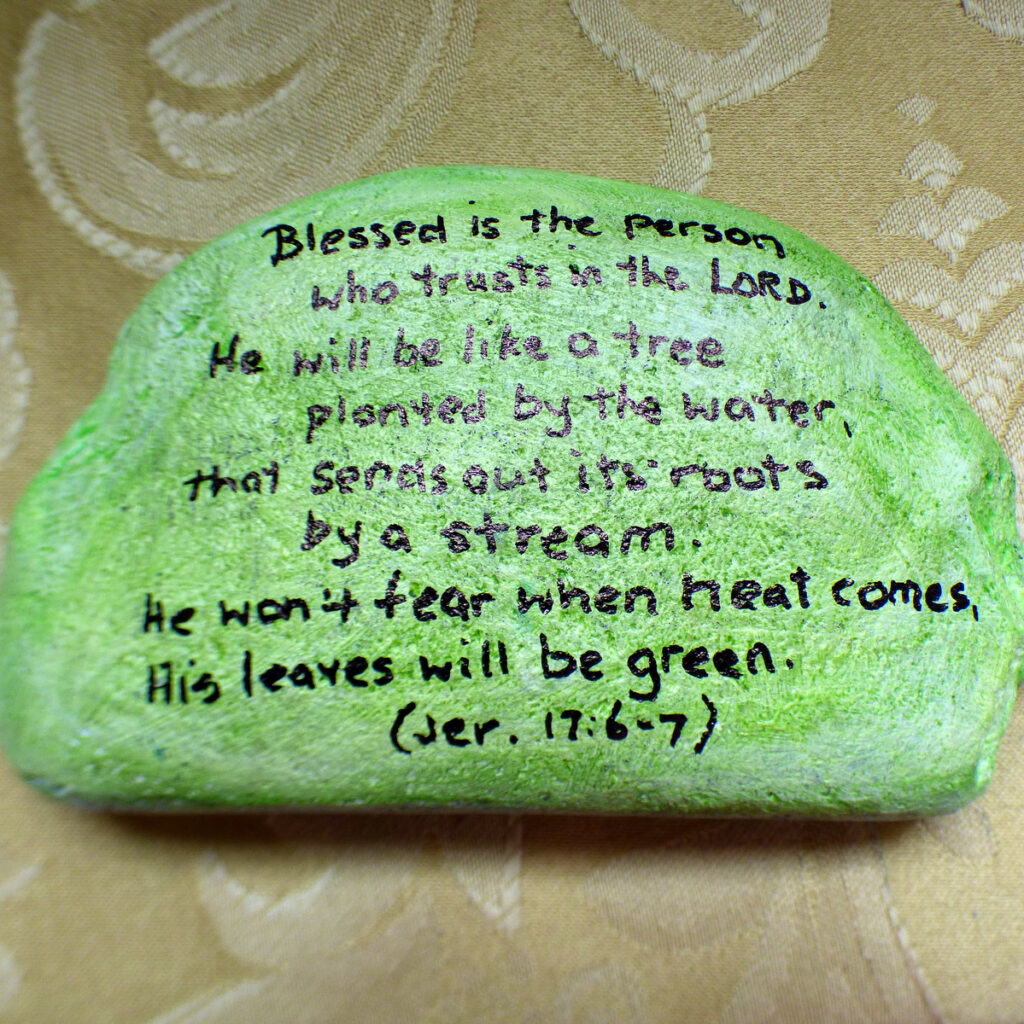 Blessed is the person
who trusts in the LORD.
He will be like a tree
planted by the water,
that sends out its roots
by a stream.
He won't fear when heat comes,
His leaves will be green.
(Jer. 17:6-7)